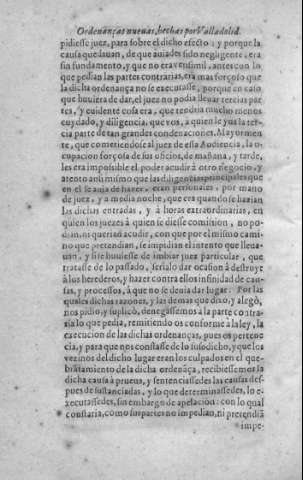 Ordenanças nueuas, hechas por Valladolid.
pidiesse juez, para sobre el dicho efeto: y porque la
causa que dauan, de que auiades sido negligente, era
sin fundamento, y que no era verisimil, antes con lo
que pedian las partes contrarias, era mas forçoso que
la dicha ordenança no se executasse, porque en caso
que huuiera de dar, el juez no podia lleuar tercias par
tes, y euidente cosa era, que tendria mucho menos
cuydado, y diligencia, que vos, a quien le yua la ter-
cia parte de tan grandes condenaciones. Mayormen
te, que cometiendose al juez de essa Audiencia, la o-
cupacion forçosa de sus oficios, de mañana, y tarde,
les era imposible el poder acudir à otro negocio, y
atento assi mismo que las diligencias principales que
en el se auia de hazer, eran personales, por mano
de juez, y a media noche, que era quando se hazian
las dichas entradas, y à horas extraordinarias, en
quien los juezes à quien se diesse comission, no po-
dian, ni querrian acudir, con que por el mismo cami
no que pretendian, se impidia el intento que lleua-
uan, y si se huuiesse de imbiar juez particular, que
tratasse de lo passado, seria lo dar ocasion à destruyr
à los herederos, y hazer contra ellos infinidad de cau-
sas, y processos, à que no se deuia dar lugar: Por las
quales dichas razones, y las demas que dixo, y alegò,
nos pidio, y suplicò, denegassemos a la parte contra-
ria lo que pedia, remitiendo os conforme à la ley, la
execucion de las dichas ordenanças, pues os pertenecia,
y para que nos constasse de lo susodicho, y que los
vezinos del dicho lugar eran los culpados en el que-
brãtamiento de la dicha ordenãça, recibiessemos la
dicha causa à prueua, y sentenciassedes las causas des-
pues de sustanciadas, y lo que determinassedes, lo e-
xecutassedes, sin embargo de apelacion: con lo qual
constaria, como sus partes no impedian, ni pretendiã
impe-